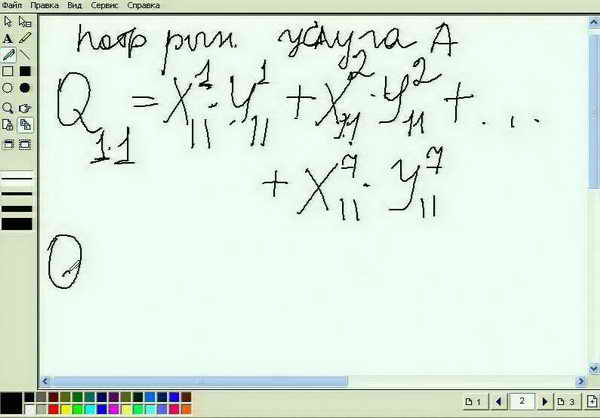 Файл Правка Вид Сервис Справка
потр рын. услуга А
Q₁.₁ = X¹₁₁ · Y¹₁₁ + X²₁₁ · Y²₁₁ + . . .
+ X⁷₁₁ · Y⁷₁₁
Q
1 2 3